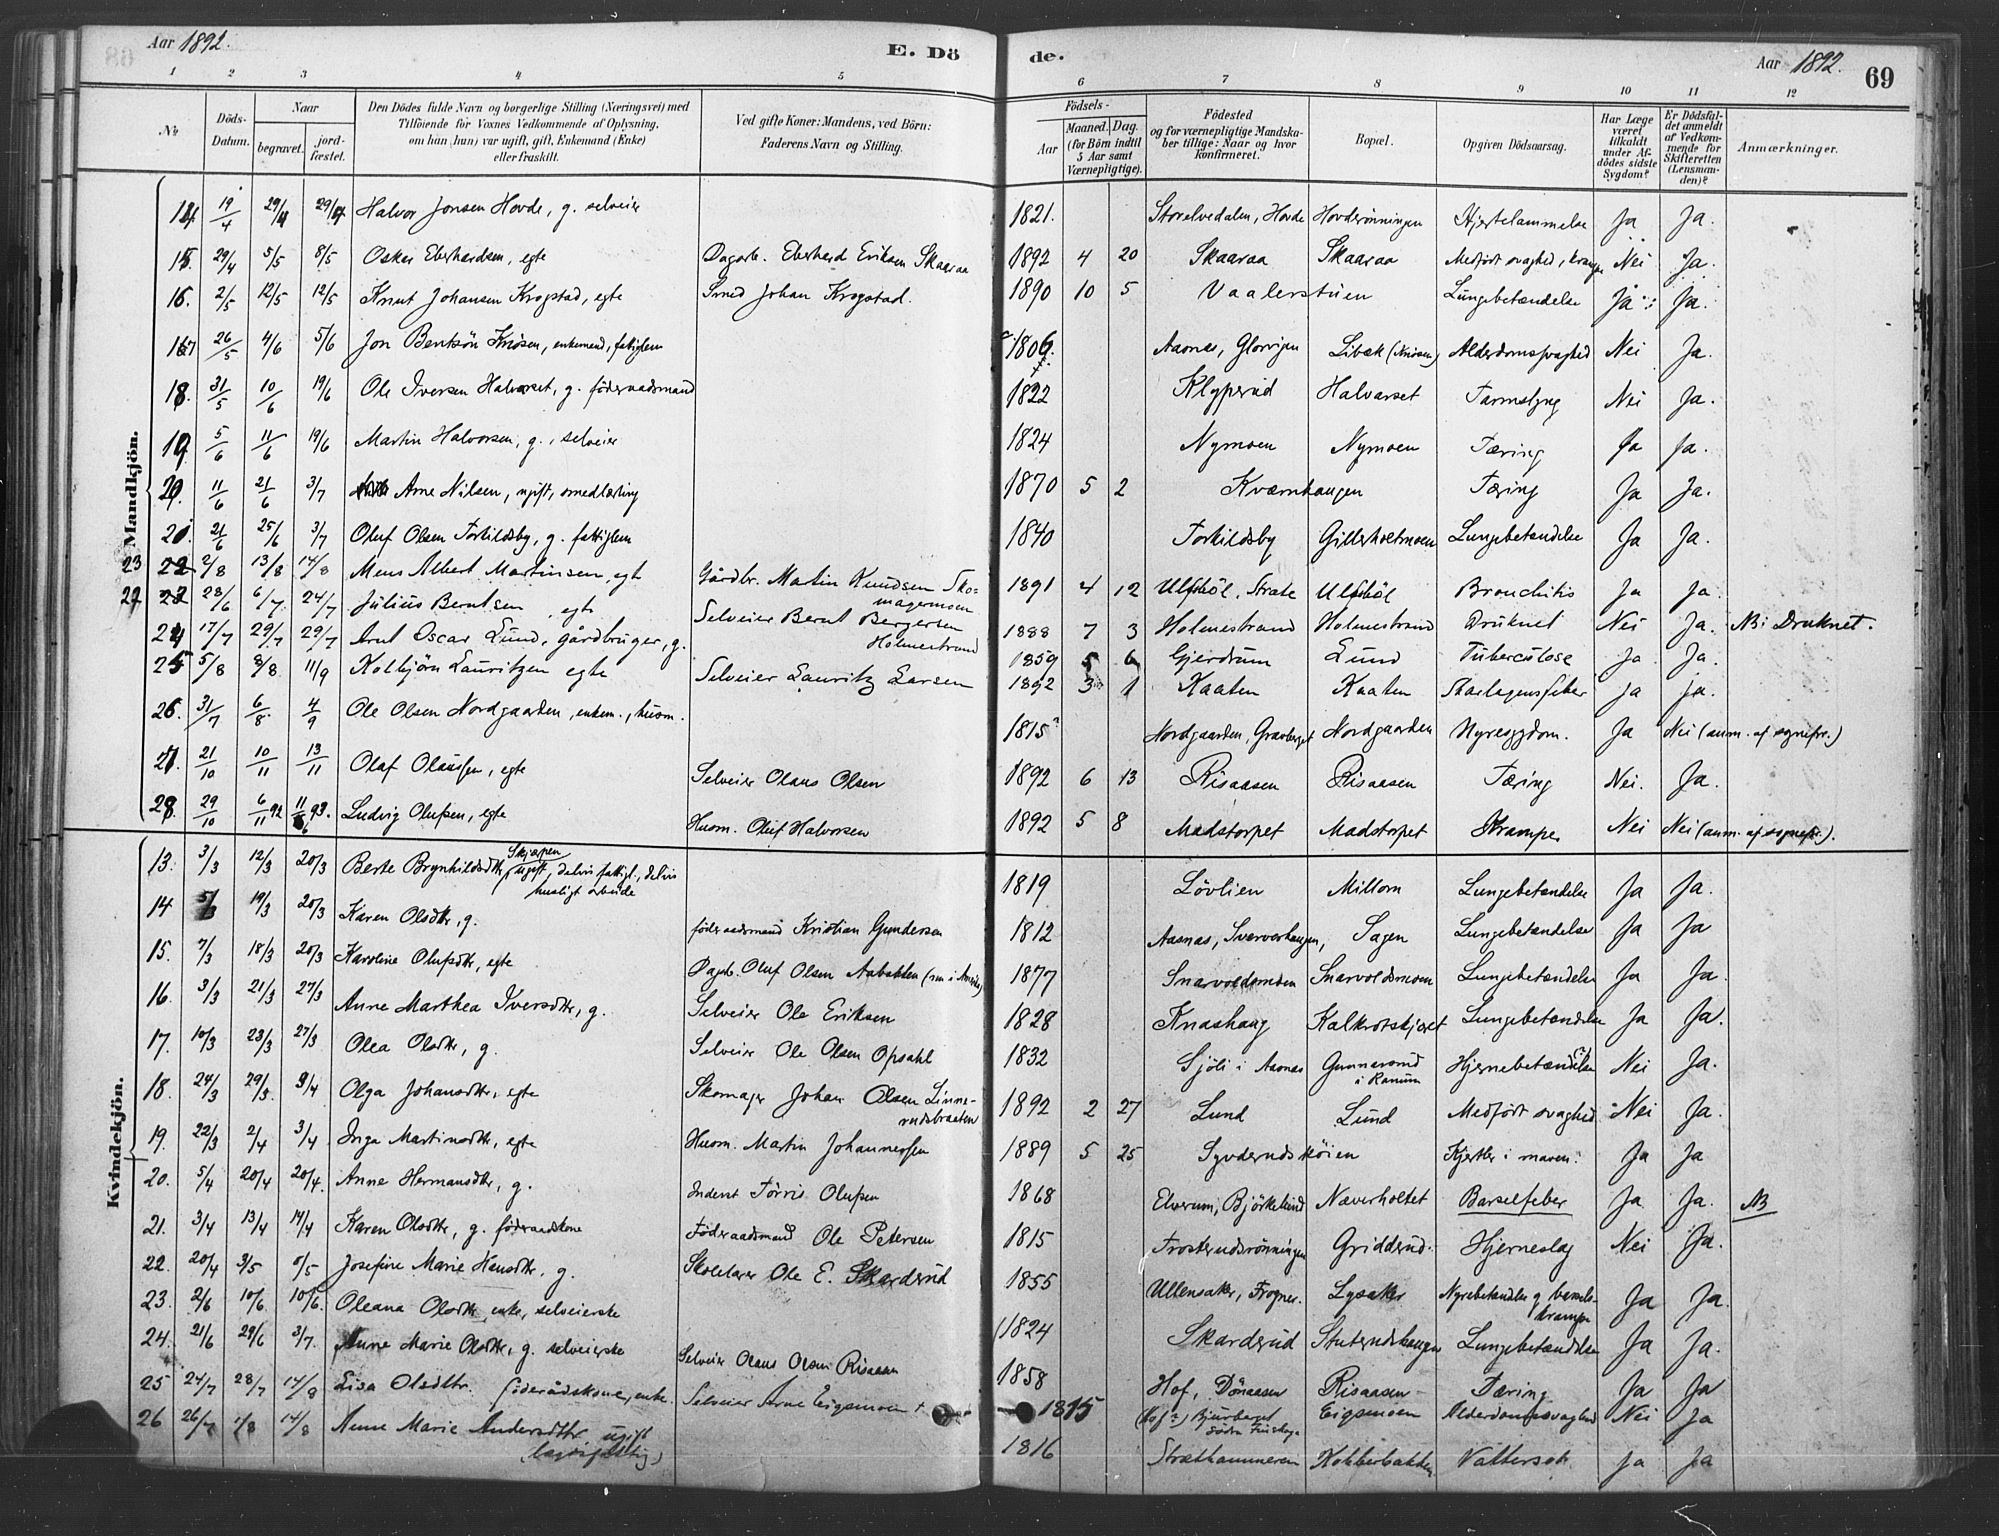 Aar 1892.
E. Dö
de.
Aar 1892.
69
1 2 3 4 5 6 7 8 9 10 11 12
No
Döds-Datum.
Naar
begravet.
jord-fæstet.
Den Dödes fulde Navn og borgerlige Stilling (Næringsvei) med
Tilföiende for Voxnes Vedkommende af Oplysning,
om han (hun) var ugift, gift, Enkemand (Enke)
eller fraskilt.
Ved gifte Koner: Mandens, ved Börn:
Faderens Navn og Stilling.
Födsels-
Aar
Maaned. Dag.
(for Börn indtil
5 Aar samt
Værnepligtige).
Födested
og for værnepligtige Mandska-
ber tillige: Naar og hvor
konfirmeret.
Bopæl.
Opgiven Dödsaarsag.
Har Læge
været
tilkaldt
under Af-
dödes sidste
Sygdom?
Er Dödsfal-
det anmeldt
af Vedkom-
mende for
Skifteretten
(Lensman-
den)?
Anmærkninger.
Mandkjön.
14. 19/4 29/4 29/4 Halvor Jonsen Hovde, g. selveier 1821. Storelvedalen, Hovde Hovderönningen Hjertelammelse Ja Ja.
15. 29/4 5/5 8/5 Oskar Eberhardsen, egte Dagarb. Eberhard Eriksen Skaaraa 1892 4 20 Skaaraa Skaaraa Medfödt svaghed, krampe Nei Ja.
16. 2/5 12/5 12/5 Knut Johansen Krogstad, egte Smed Johan Krogstad. 1890 10 5 Vaalerstuen Lungebetændelse Ja Ja.
17 26/5 4/6 5/6 Jon Bentsön Knösen, enkemand, fattiglem 1806. Aasnas, Glorvigen Libæk (Knösen) Alderdomssvaghed Nei Ja.
18. 31/5 10/6 19/6 Ole Iversen Halvorset, g. föderaadsmand 1822 Klyperud Halvarset Tarmslyng Nei Ja.
19. 5/6 11/6 19/6 Martin Halvorsen, g., selveier 1824 Nymoen Nymoen Tæring Ja Ja.
20. 11/6 21/6 3/7 Arne Nilsen, ugift, smedlærling 1870 5 2 Kværnhaugen Tæring Ja Ja.
21 21/6 25/6 3/7 Oluf Olsen Torkildsby, g. fattiglem 1840 Torkildsby Gillerholtmoen Lungebetændelse Ja Ja.
23 2/8 13/8 14/8 Mens Albert Martinsen, egt Gårdbr. Martin Knudsen Sko-
magermoen 1891 4 12 Ulfsböl, Strate Ulfsböl Bronchitis Ja Ja.
22 28/6 6/7 24/7 Julius Berntsen, egt Selveier Bernt Bergersen
Holmestrand 1888 7 3 Holmestrand Holmestrand Druknet Nei Ja. NB: Druknet.
24 17/7 29/7 29/7 Arnt Oscar Lund, gårdbruger, g. 1859 5 6 Gjerdrum Lund Tuberculose Ja Ja.
25 5/8 8/8 11/9 Kolbjörn Lauritzen egte Selveier Lauritz Larsen 1892 3 1 Kaaten Kaaten Skarlagensfeber ja ja.
26. 31/7 6/8. 4/9 Ole Olsen Nordgaarden, enkem., husm. 1815? Nordgaarden, Gravberget Nordgaarden Nyresygdom. Ja Nei (anm. af sognepr.)
27. 21/10 10/11 13/11 Olaf Olaussen, egte Selveier Olaus Olsen 1892 6 13 Risaasen Risaasen Tæring Nei. Ja.
28. 29/10 6/11 92 11/6 93. Ludvig Olufsen, egte Husm. Oluf Halvorsen 1892 5 8 Madstorpet Madstorpet Krampe Nei Nei (anm. af sognepr.).
Kvindekjön.
13. 3/3 12/3 20/3 Berte Brynhildsdtr, Skjærpen
ugift, delvis fattigl., delvis
husligt arbeide 1819 Lövlien Millom Lungebetændelse Ja Ja.
14 5/3 19/3 20/3 Karen Olsdtr, g. föderaadsmand Kristian Gundersen 1812 Aasnas, Sværverhaugen, Sagen Lungebetændelse Ja Ja
15. 7/3 18/3 20/3 Karoline Olufsdtr, egte Dagarb. Oluf Olsen Aabakken 1877 Snarvoldsmoen Snarvoldsmoen Lungebetændelse Ja Ja.
16. 3/3 21/3 27/3 Anne Marthea Iversdtr, g. Selveier Ole Eriksen 1828 Knashaug Kalkrotskjæret Lungebetændelse Ja Ja.
17. 10/3 23/3 27/3 Olea Olsdtr, g. Selveier Ole Olsen Opsahl 1832 Sjöli i Aasnas Gunnarsrud
i Ranum Hjernebetændelse Nei Ja.
18. 24/3 29/3. 3/4 Olga Johansdtr, egte Skomager Johan Olsen Linne-
rudsbraaten 1892 2 27 Lund Lund Medfödt svaghed Nei Ja.
19. 22/3 2/4 3/4 Inga Martinsdtr, egte Husm. Martin Johannessen 1889 5 25 Syvderudsköien Kjertler i maven. Ja Ja
20. 5/4 20/4 20/4. Anne Hermansdtr, g. Inderst Törris Olufsen 1868 Elverum, Björkelund Næverholtet Barselfeber Ja Ja. NB
21. 3/4 13/4 14/4 Karen Olsdtr, g. föderaadskone Föderaadsmand Ole Petersen 1815 Frosterudsrönningen Gridderud. Hjerneslag Nei Ja.
22. 20/4 3/5 5/5 Josefine Marie Hansdtr, g. Skolelærer Ole E. Skarderud 1855 Ullensaker, Frogner. Lysaker Nyrebetændelse og barsels-
krampe Ja Ja.
23. 2/6 10/6 10/6. Oleana Olsdtr, enke, selveierske 1824 Skarderud Stuterudshaugen Lungebetændelse Ja Ja.
24. 21/6 29/6 3/7. Anne Marie Olsdtr, g. selveierske Selveier Olaus Olsen Risaasen 1858 Hof, Dönaasen Risaasen Tæring Ja Ja
25 24/7 28/7 14/8 Lisa Olsdttr. föderådskone, enke. Selveier Arne Eigsmoen + 1815 (Hof?) Bjurberget
Södra Finskoga Eigsmoen Alderdomssvaghed Nei Ja
26 26/7 1/8 14/8 Anne Marie Andersdttr ugift
(lægdsfattig) 1816 Stræthammeren Kobberbakken Vattersot ja Ja